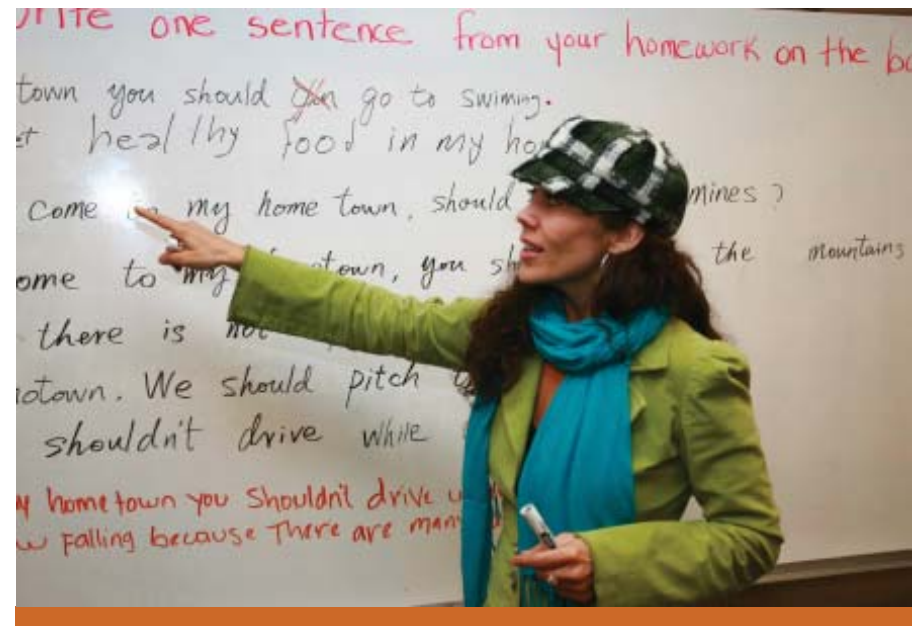 one sentence from your homework on the
town you should go to swiming.
healthy food in my
come in my home town, should mines?
to my town, you the mountains
there is not
We should pitch
shouldn't drive while
hometown you Shouldn't drive
Falling because There are many